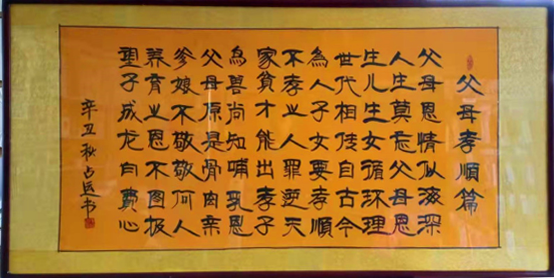 父母孝順篇
父母恩情似海深
人生莫忘父母恩
生儿生女循环理
世代相传自古今
為人子女要孝順
不孝之人罪逆天
家貧才能出孝子
鳥兽尚知哺乳恩
父母原是骨肉亲
爹娘不敬敬何人
养育之恩不图报
望子成龙白費心
辛丑秋占 书